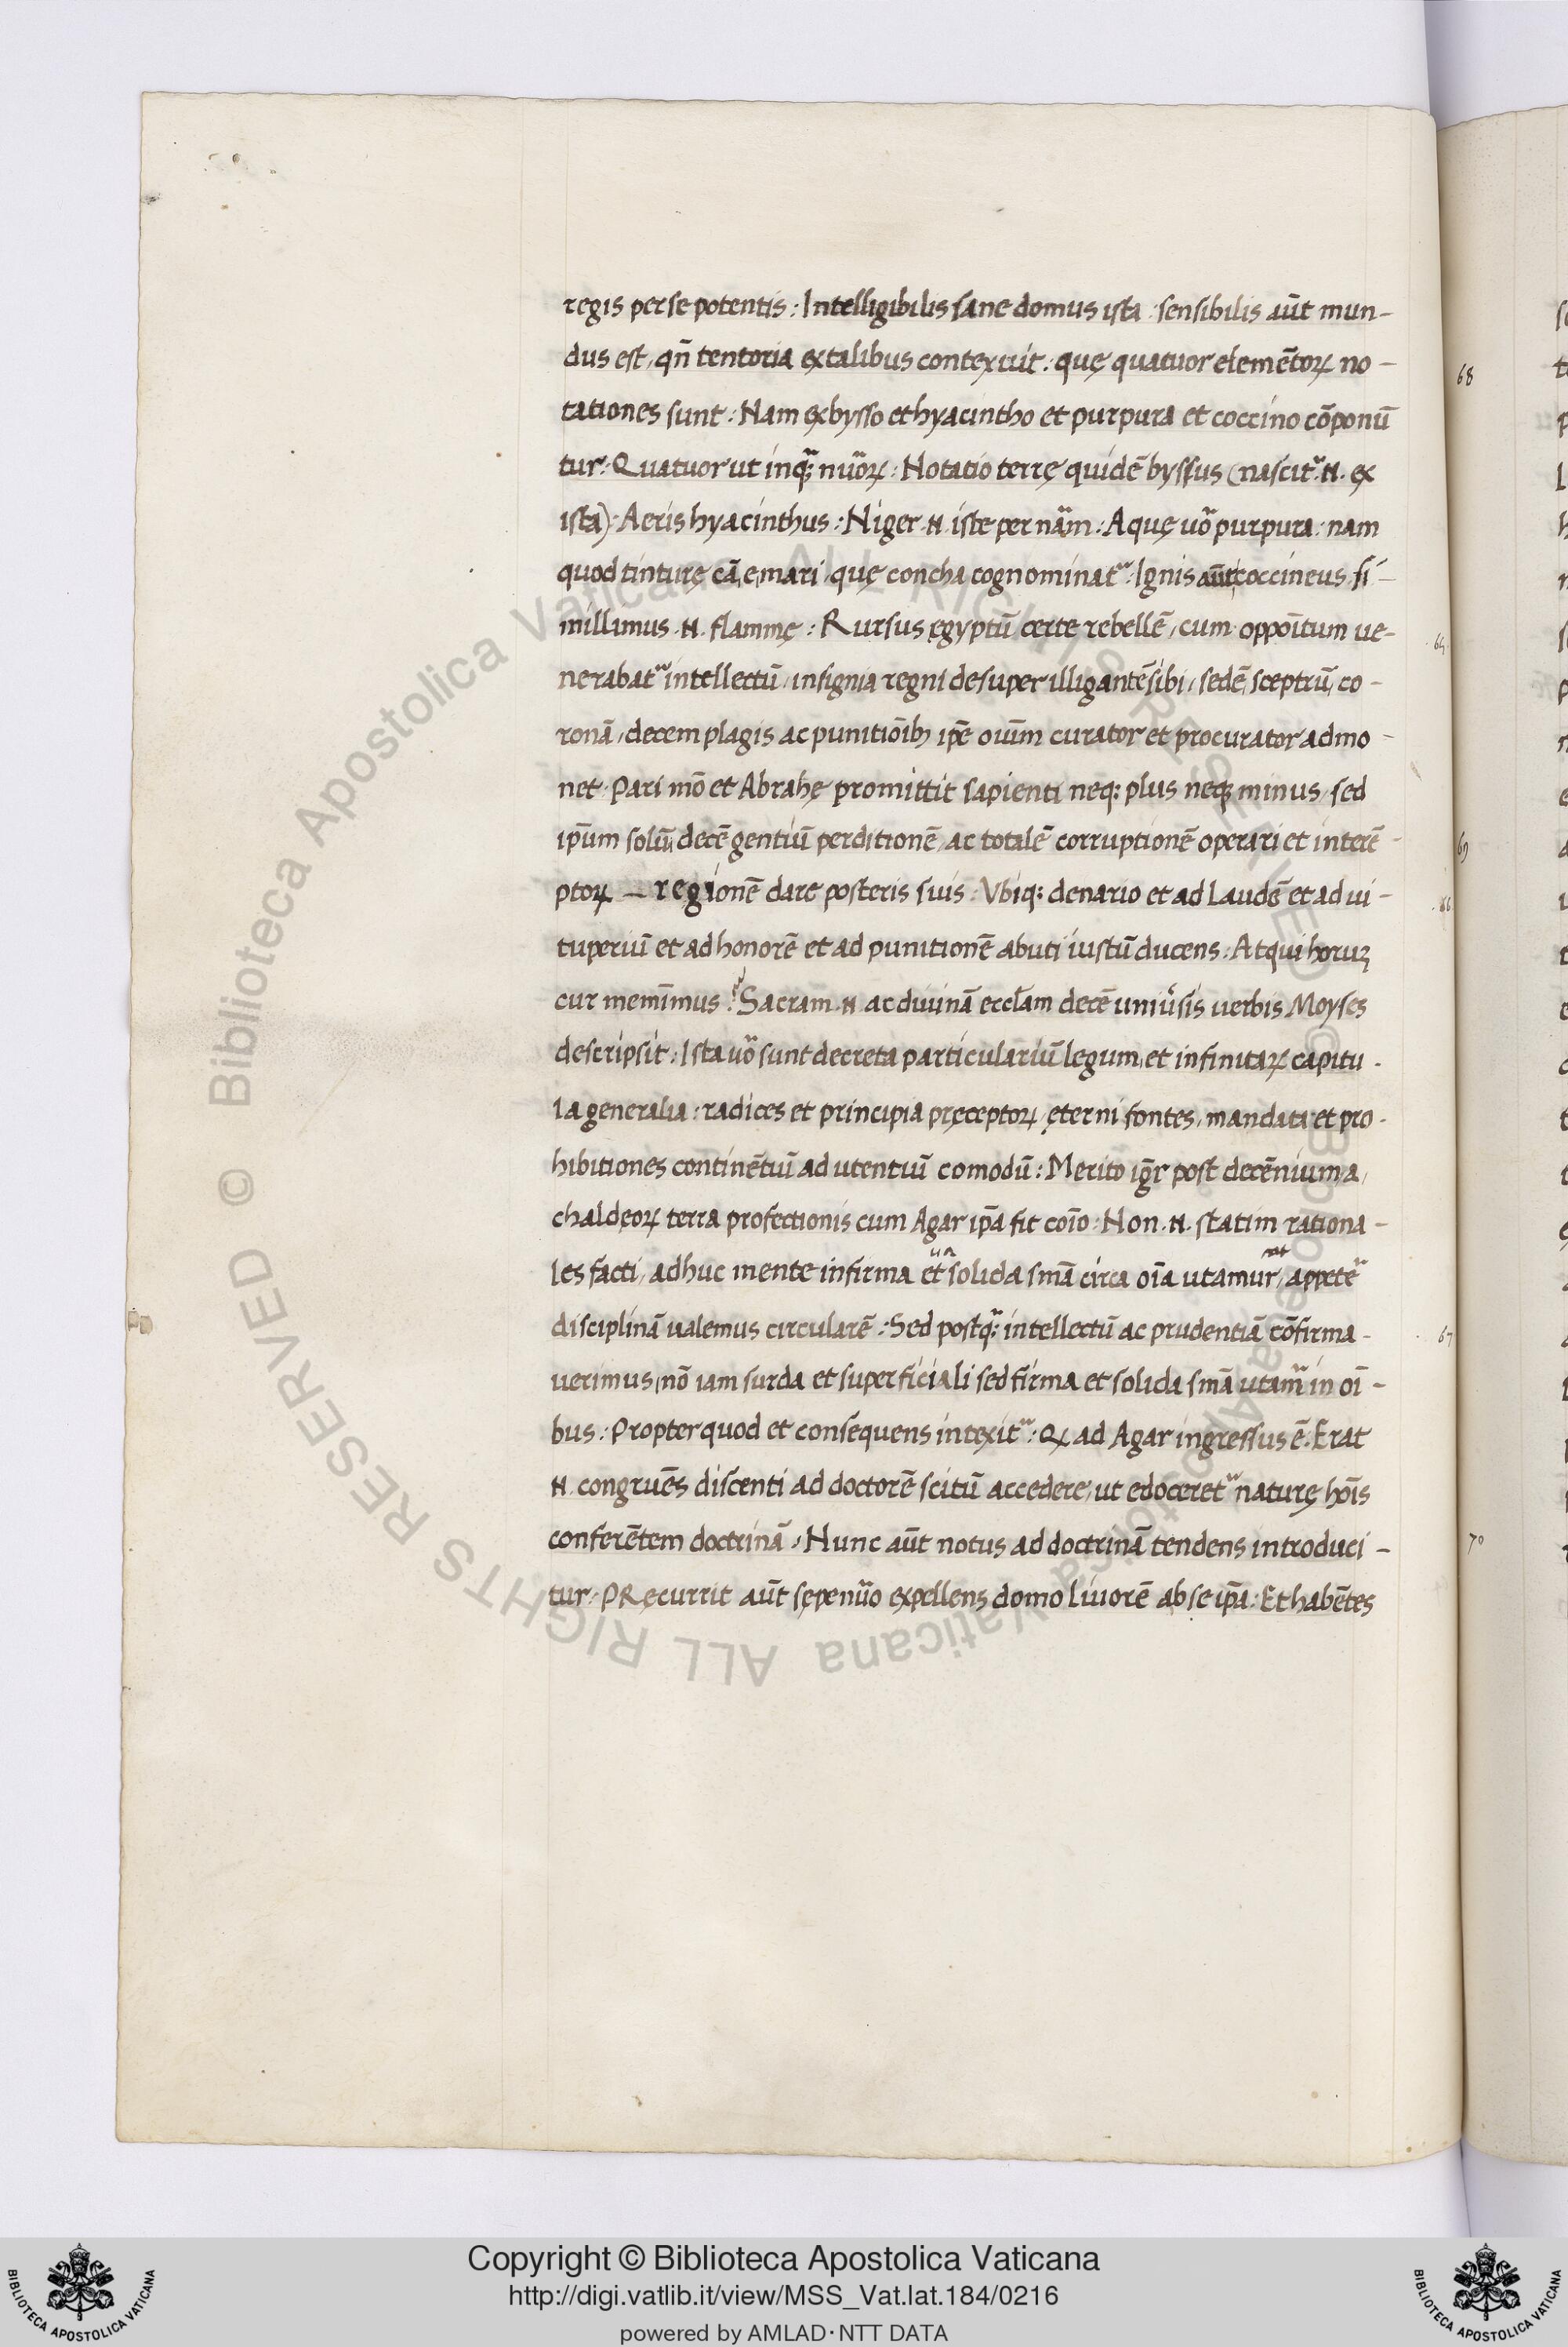 regis per se potentis : Intelligibilis sane domus ista : sensibilis aūt mun-
dus est, qn̄ tentoria ex talibus contexuit : quę quatuor elemētoꝝ no-
tationes sunt : Nam ex bysso et hyacintho et purpura et coccino cōponū
tur : Quatuor ut inqꝫ nūoꝝ : Notatio terrę quidē byssus (nascit᷑ .N. ex
ista) : Aeris hyacinthus : Niger .N. iste per nām : Aquę uō purpura : nam
quod tinturę cā, e, mari, quę concha cognominat᷑ : Ignis aūt coccineus si-
millimus .N. flammę : Rursus ęgyptū certe rebellē, cum oppoītum ue-
nerabat᷑ intellectū, insignia regni desuper illigantē sibi, sedē, sceptrū, co-
ronā, decem plagis ac punitiōibꝫ ip̄e ouīm curator et procurator admo-
net. Pari mō et Abrahę promittit sapienti neqꝫ plus neqꝫ minus, sed
ip̄um solū, decē gentiū perditionē, ac totalē corruptionē operari et interē-
ptoꝝ — regionē dare posteris suis : Vbiqꝫ denario et ad Laudē et ad ui-
tuperiū et ad honorē et ad punitionē abuti iustū ducens : Atqui horuꝫ
cur memīmus ? Sacram .N. ac diuinā eccl̄am decē uniūsis uerbis Moyses
descripsit : Ista uō sunt decreta particulariū legum, et infinitaꝝ capitu-
la generalia : radices et principia pręceptoꝝ, ęterni fontes, mandata et pro-
hibitiones continētiū ad utentiū comodū : Merito iḡr post decēnium, a,
chaldęoꝝ terra profectionis cum Agar ip̄a fit coīo : Non .N. statim rationa-
les facti, adhuc mente infirma et solida smā circa oīa utamur, appetē
disciplinā ualemus circularē : Sed postqꝫ intellectū ac prudentiā cōfirma-
uerimus, nō iam surda et superficiali sed firma et solida smā utam᷑ in oī-
bus : Propter quod et consequens intexit᷑ : Qꝫ ad Agar ingressus ē. Erat
.N. congruēs discenti ad doctorē scitū accedere, ut edoceret᷑ naturę hoīs
conferētem doctrinā, Nunc aūt notus ad doctrinā tendens introduci-
tur : PRęcurrit aūt sępenūo expellens domo liuorē ab se ip̄a : Et habētes
68
69
67
70
Copyright © Biblioteca Apostolica Vaticana
http://digi.vatlib.it/view/MSS_Vat.lat.184/0216
powered by AMLAD·NTT DATA
BIBLIOTECA APOSTOLICA VATICANA
BIBLIOTECA APOSTOLICA VATICANA
© Biblioteca Apostolica Vaticana ALL RIGHTS RESERVED © Biblioteca Apostolica Vaticana ALL RIGHTS RESERVED